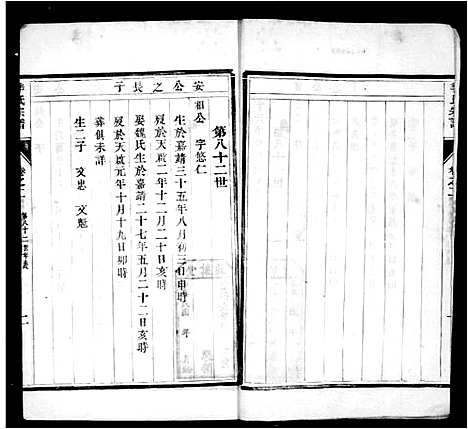 第八十二世
安公之長子
祖公 字悠仁
生於嘉靖三十五年八月初三日申時
歿於天啟二年十二月二十日亥時
娶魏氏生於嘉靖二十七年五月二十二日亥時
歿於天啟元年十月十九日卯時
葬俱未詳
生二子 文忠 文魁
氏宗譜
卷之